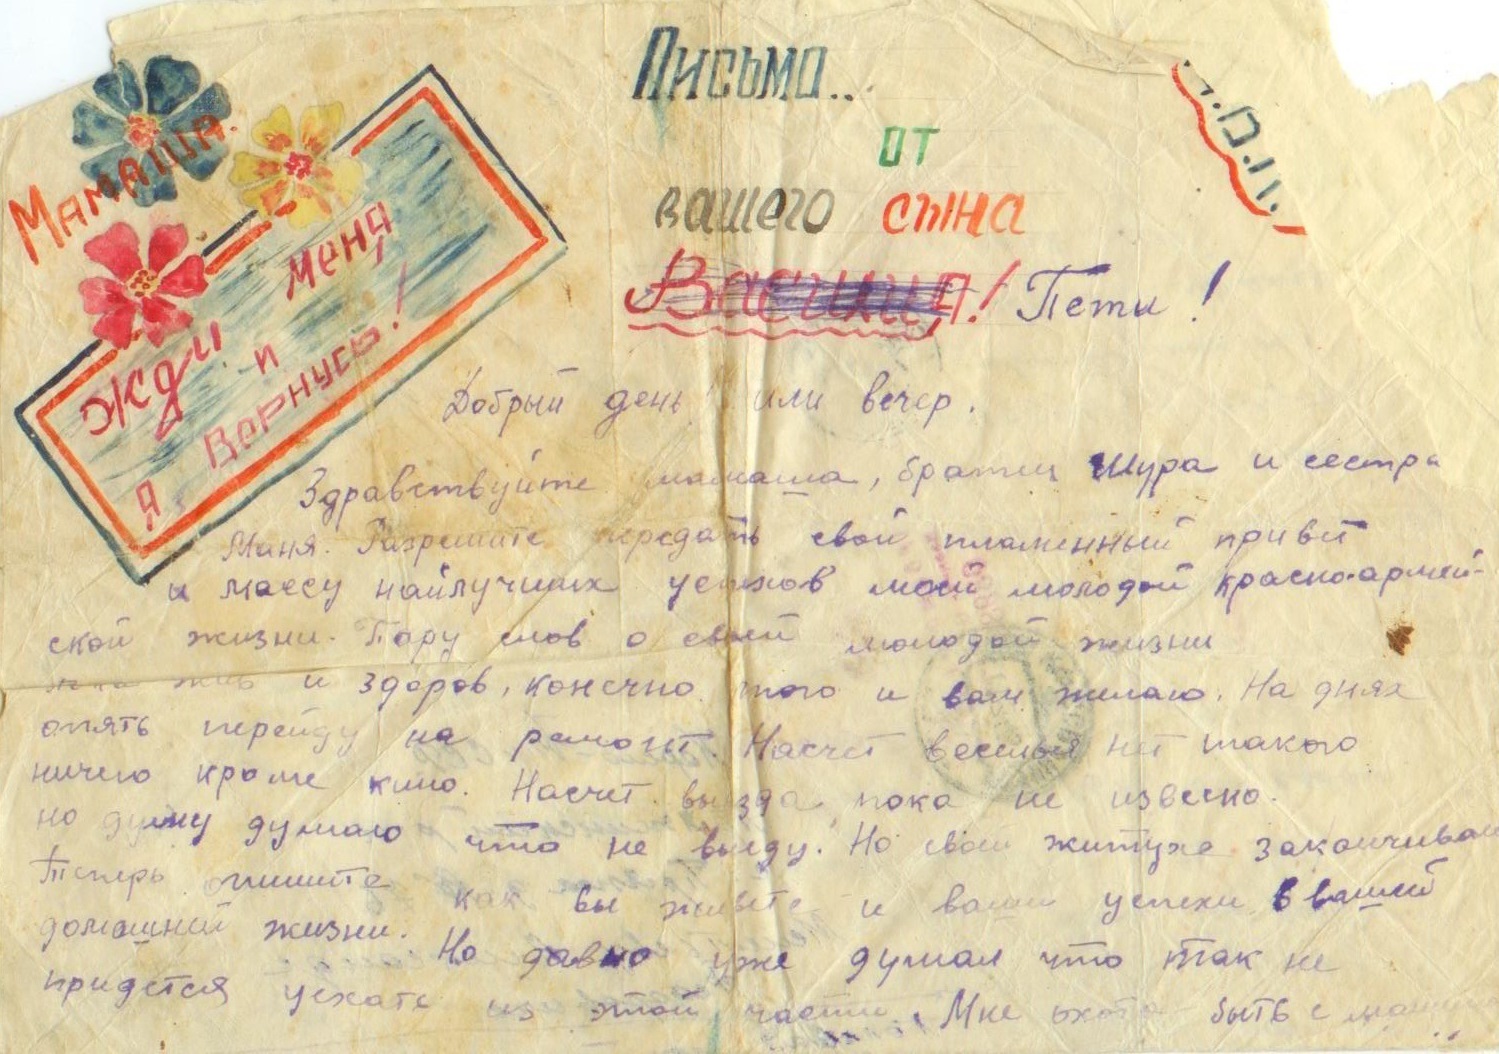 Письмо...
от
вашего сына
Васинця! Пети!
Мамаша.
жди меня
и
я вернусь!
Добрый день! или вечер.
Здравствуйте мамаша, братец Шура и сестра
Маня. Разрешите передать свой пламенный привет
и массу найлучших успехов моей молодой красно-армей-
ской жизни. Пару слов о своей молодой жизни
жив и здоров, конечно того и вам желаю. На днях
опять перейду на ремонт. Насчет веселья нет такого
ничего кроме кино. Насчет выезда пока не извесно.
но думаю что не выеду. Но свои житухе заканчиваю
Теперь опишите как вы живете и ваши успехи в вашей
домашней жизни. Но давно уже думал что так не
придется уехать из этой части. Мне охота быть с